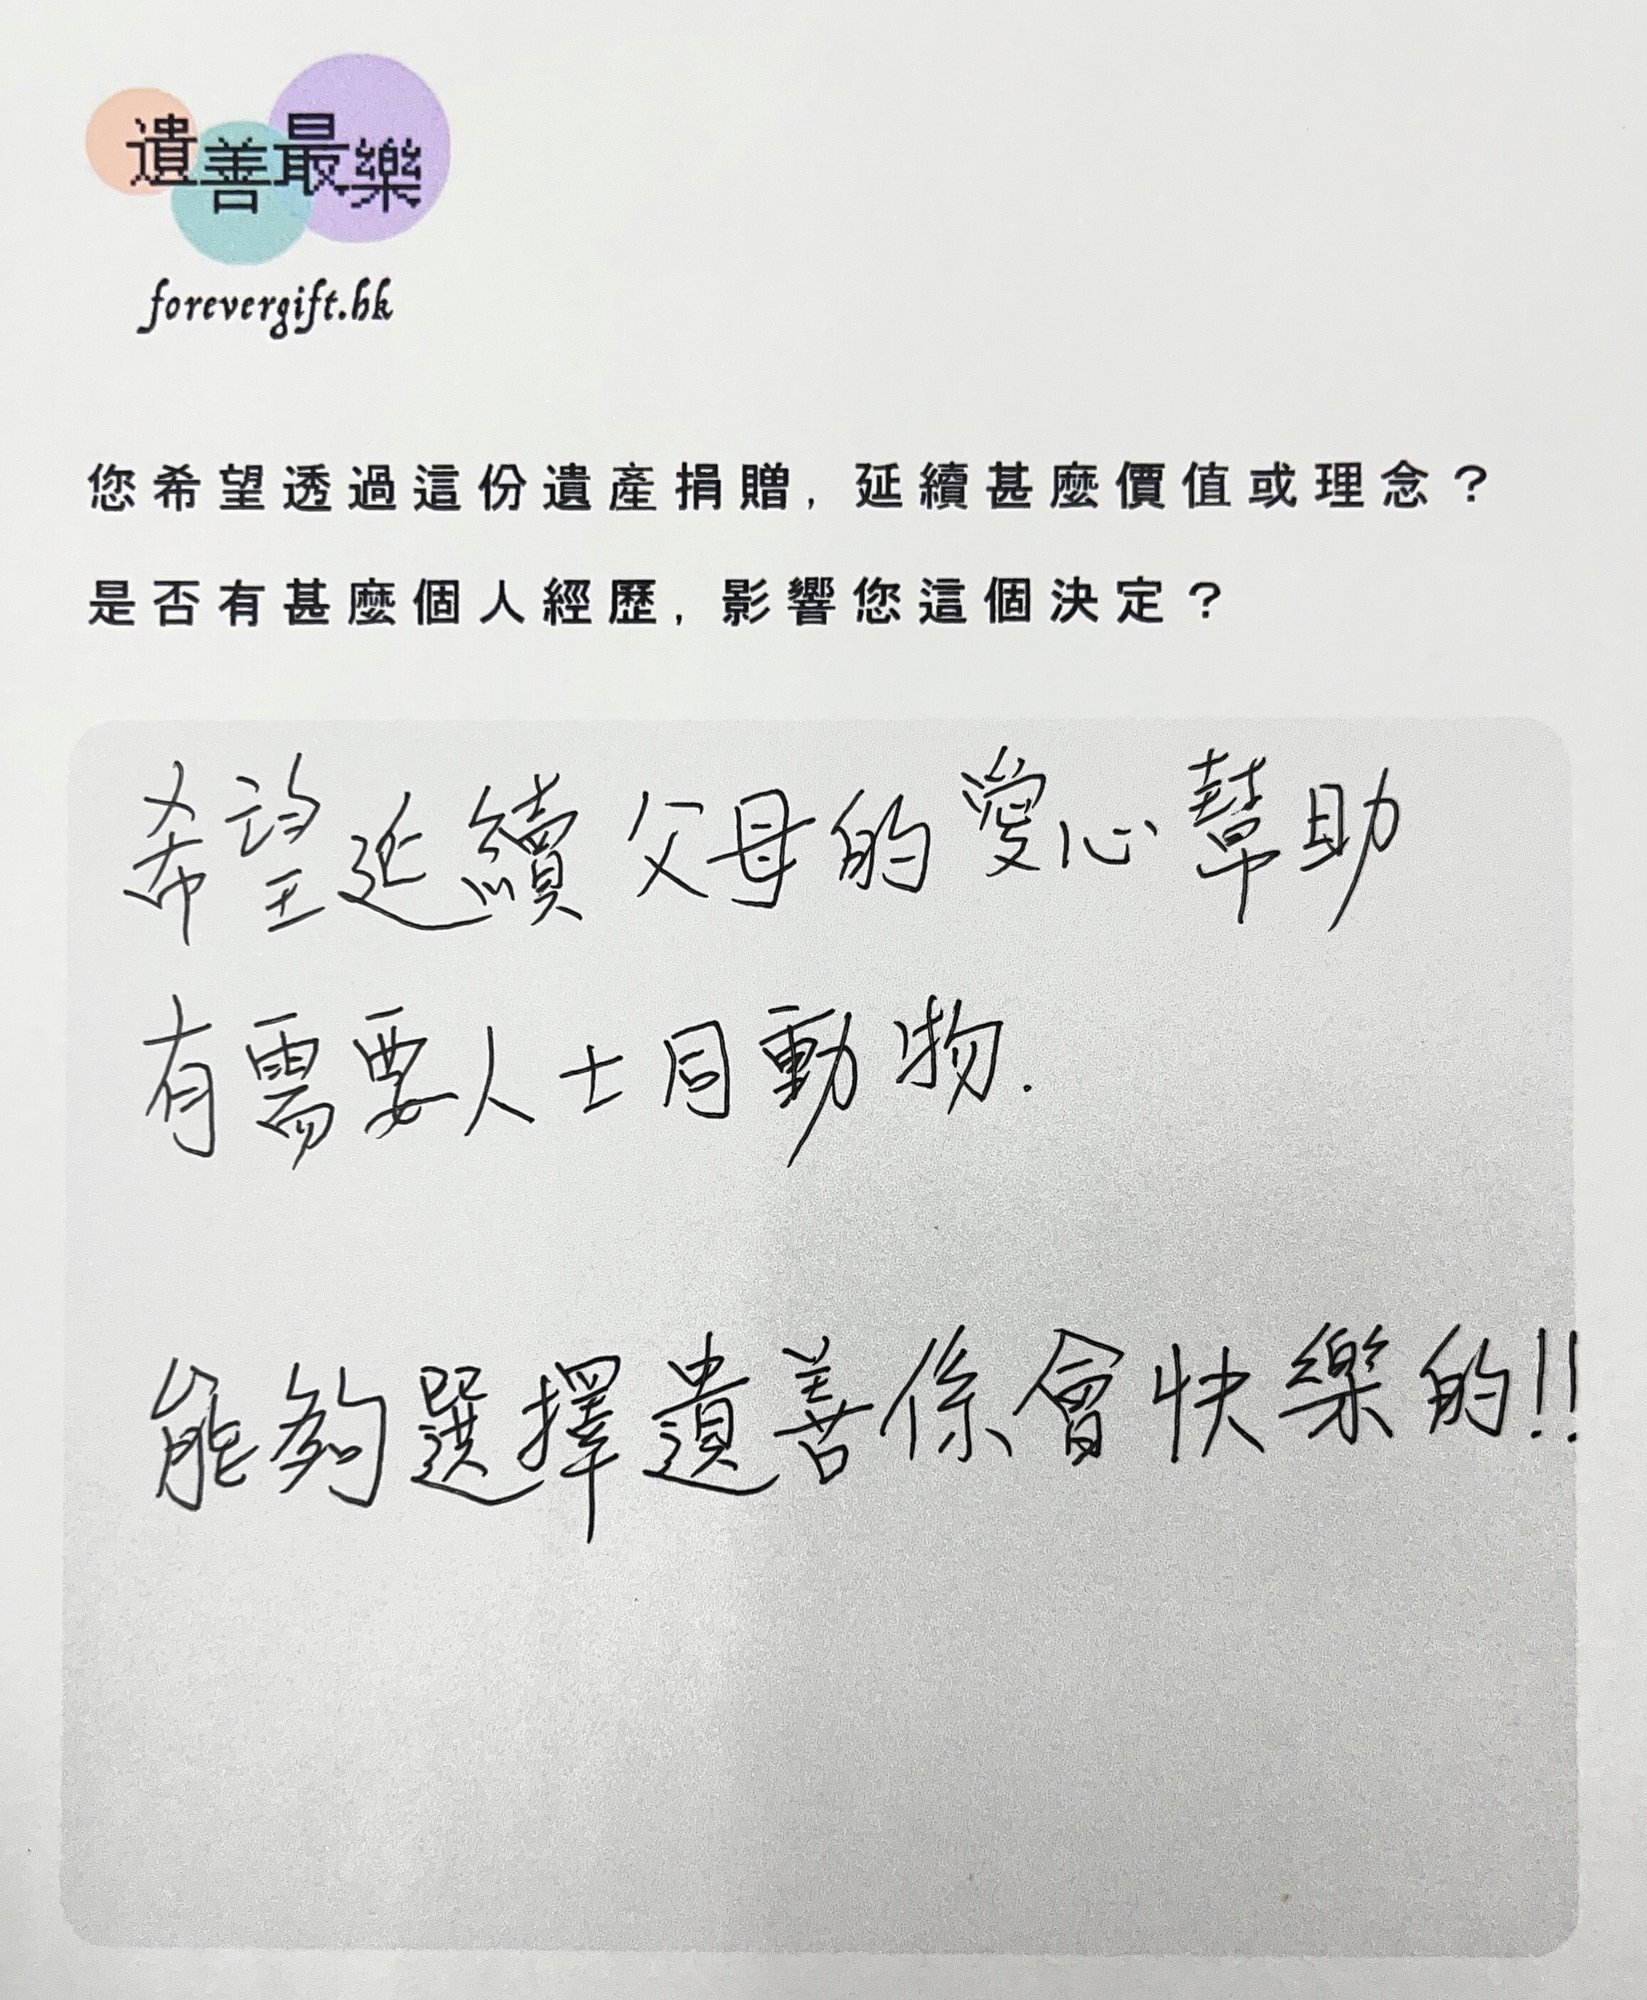 遺善最樂
forevergift.hk
您希望透過這份遺產捐贈，延續甚麼價值或理念？
是否有甚麼個人經歷，影響您這個決定？
希望延續父母的愛心幫助
有需要人士同動物.
能夠選擇遺善係會快樂的!!